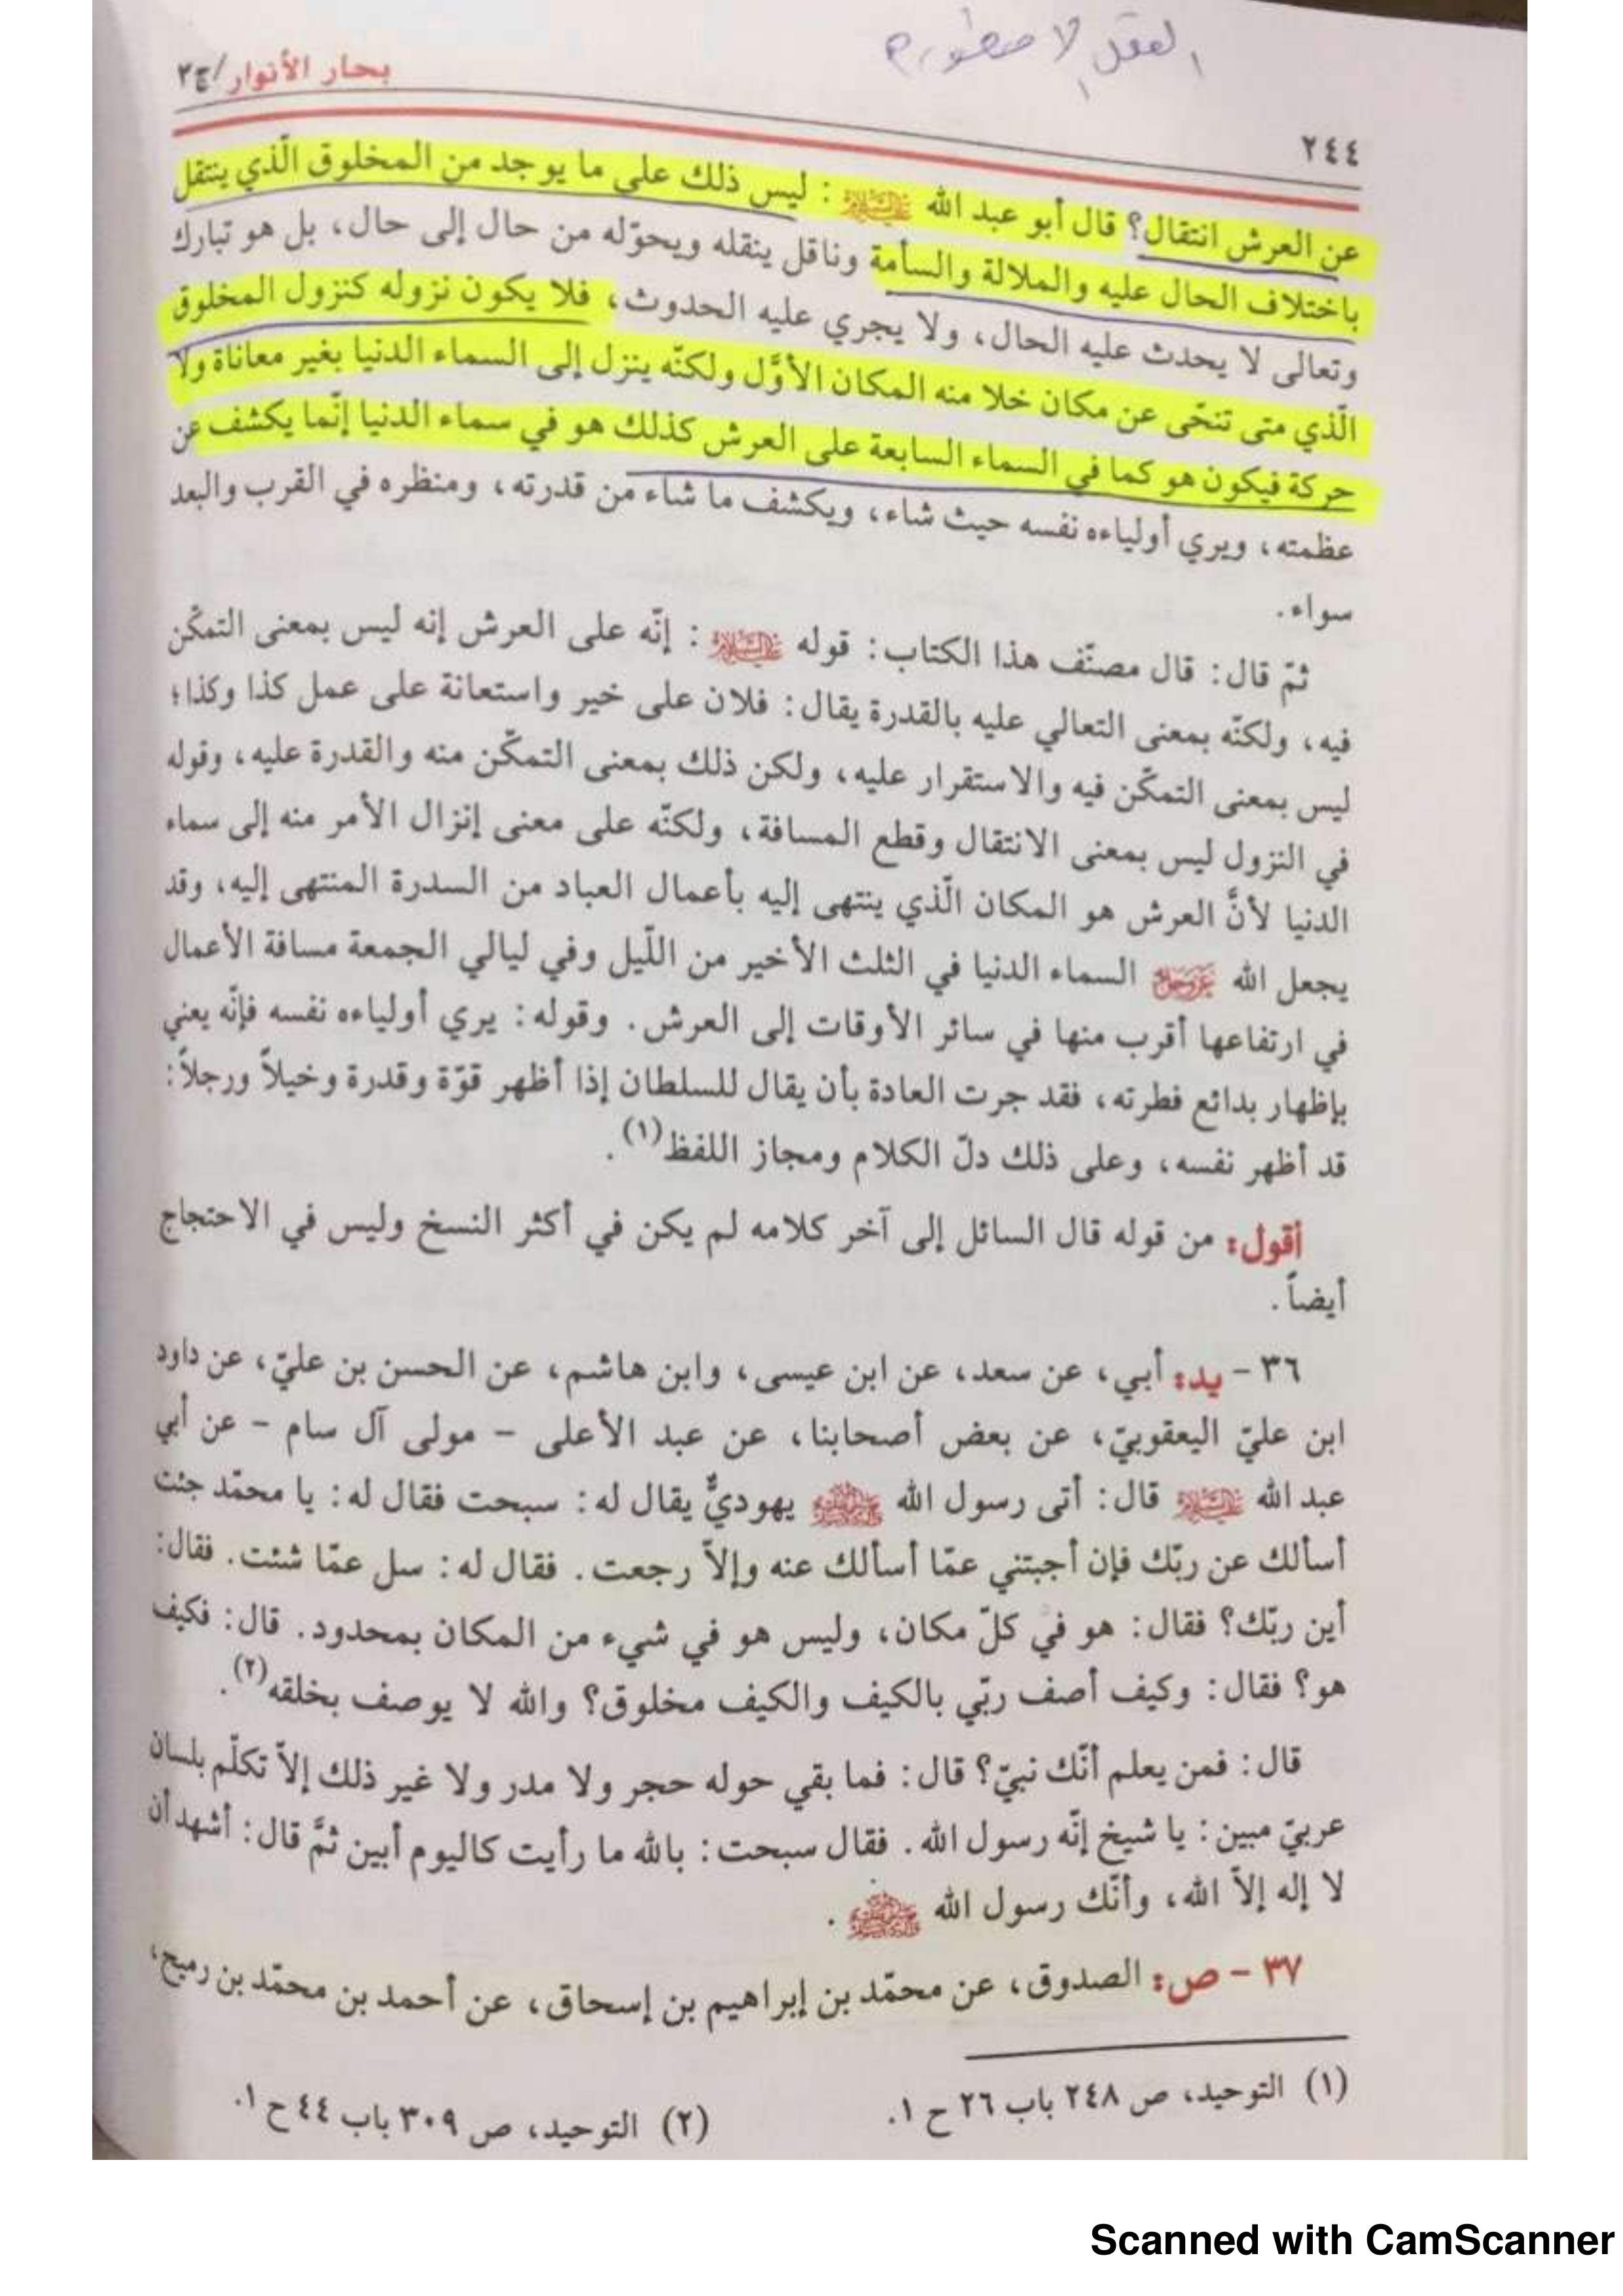 العقل الاسطوري
بحار الأنوار/ج٢
٢٤٤
عن العرش انتقال؟ قال أبو عبد الله عليه السلام: ليس ذلك على ما يوجد من المخلوق الّذي ينتقل
باختلاف الحال عليه والملالة والسأمة وناقل ينقله ويحوّله من حال إلى حال، بل هو تبارك
وتعالى لا يحدث عليه الحال، ولا يجري عليه الحدوث، فلا يكون نزوله كنزول المخلوق
الّذي متى تنحّى عن مكان خلا منه المكان الأوَّل ولكنّه ينزل إلى السماء الدنيا بغير معاناة ولا
حركة فيكون هو كما في السماء السابعة على العرش كذلك هو في سماء الدنيا إنّما يكشف عن
عظمته، ويري أولياءه نفسه حيث شاء، ويكشف ما شاء من قدرته، ومنظره في القرب والبعد
سواء.
ثمّ قال: قال مصنّف هذا الكتاب: قوله عليه السلام: إنّه على العرش إنه ليس بمعنى التمكّن
فيه، ولكنّه بمعنى التعالي عليه بالقدرة يقال: فلان على خير واستعانة على عمل كذا وكذا؛
ليس بمعنى التمكّن فيه والاستقرار عليه، ولكن ذلك بمعنى التمكّن منه والقدرة عليه، وقوله
في النزول ليس بمعنى الانتقال وقطع المسافة، ولكنّه على معنى إنزال الأمر منه إلى سماء
الدنيا لأنَّ العرش هو المكان الّذي ينتهى إليه بأعمال العباد من السدرة المنتهى إليه، وقد
يجعل الله عز وجل السماء الدنيا في الثلث الأخير من اللّيل وفي ليالي الجمعة مسافة الأعمال
في ارتفاعها أقرب منها في سائر الأوقات إلى العرش. وقوله: يري أولياءه نفسه فإنّه يعني
بإظهار بدائع فطرته، فقد جرت العادة بأن يقال للسلطان إذا أظهر قوّة وقدرة وخيلاً ورجلاً:
قد أظهر نفسه، وعلى ذلك دلّ الكلام ومجاز اللفظ(١).
أقول: من قوله قال السائل إلى آخر كلامه لم يكن في أكثر النسخ وليس في الاحتجاج
أيضاً.
٣٦ - يد: أبي، عن سعد، عن ابن عيسى، وابن هاشم، عن الحسن بن عليّ، عن داود
ابن عليّ اليعقوبيّ، عن بعض أصحابنا، عن عبد الأعلى - مولى آل سام - عن أبي
عبد الله عليه السلام قال: أتى رسول الله صلى الله عليه وآله يهوديٌّ يقال له: سبحت فقال له: يا محمّد جئت
أسألك عن ربّك فإن أجبتني عمّا أسألك عنه وإلاّ رجعت. فقال له: سل عمّا شئت. فقال:
أين ربّك؟ فقال: هو في كلّ مكان، وليس هو في شيء من المكان بمحدود. قال: فكيف
هو؟ فقال: وكيف أصف ربّي بالكيف والكيف مخلوق؟ والله لا يوصف بخلقه(٢).
قال: فمن يعلم أنّك نبيّ؟ قال: فما بقي حوله حجر ولا مدر ولا غير ذلك إلاّ تكلّم بلسان
عربيّ مبين: يا شيخ إنّه رسول الله. فقال سبحت: بالله ما رأيت كاليوم أبين ثمَّ قال: أشهد أن
لا إله إلاّ الله، وأنّك رسول الله صلى الله عليه وآله.
٣٧ - ص: الصدوق، عن محمّد بن إبراهيم بن إسحاق، عن أحمد بن محمّد بن رميح،
(١) التوحيد، ص ٢٤٨ باب ٢٦ ح ١.
(٢) التوحيد، ص ٣٠٩ باب ٤٤ ح ١.
Scanned with CamScanner